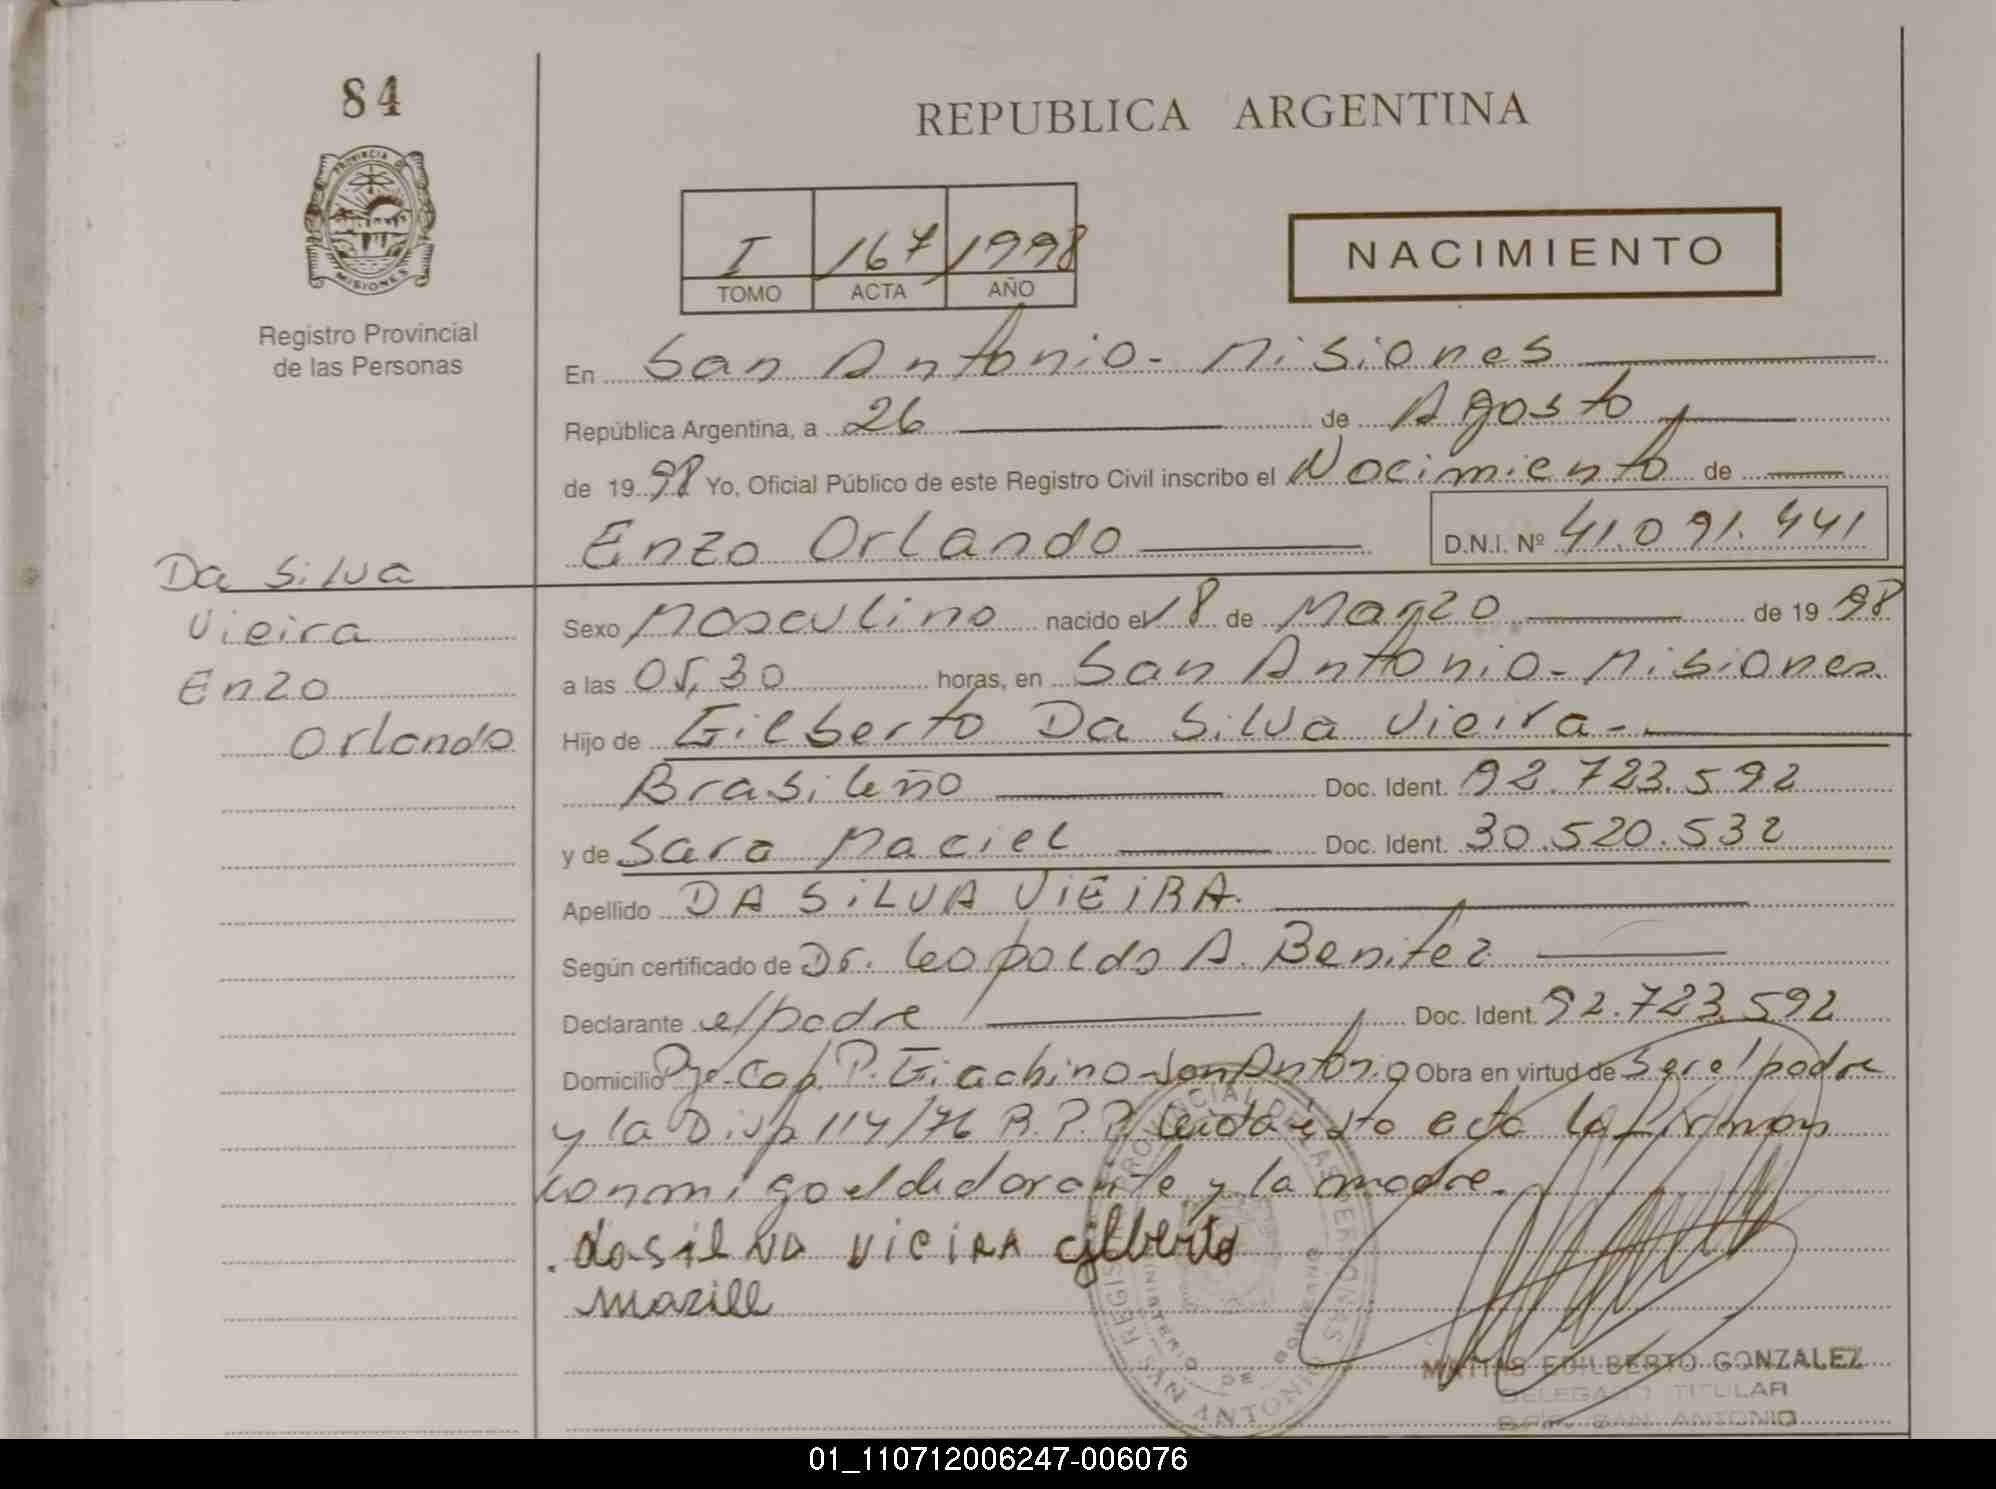 84
REPUBLICA ARGENTINA
PROVINCIA DE MISIONES
Registro Provincial
de las Personas
I 167 1998
TOMO ACTA AÑO
NACIMIENTO
En San Antonio - Misiones
República Argentina, a 26 de Agosto
de 19 98 Yo, Oficial Público de este Registro Civil inscribo el Nacimiento de
Enzo Orlando D.N.I. Nº 41.091.441
Da Silva
Vieira
Enzo
Orlando
Sexo Masculino nacido el 18 de Marzo de 19 98
a las 05,30 horas, en San Antonio - Misiones
Hijo de Gilberto Da Silva Vieira -
Brasileño Doc. Ident. 92.723.592
y de Sara Maciel Doc. Ident. 30.520.532
Apellido DA SiLVA ViEiRA.
Según certificado de Dr. Leopoldo A. Benitez
Declarante el padre Doc. Ident. 92.723.592
Domicilio Pje. Cap. P. Giachino - San Antonio Obra en virtud de ser el padre
y la Disp 114/76 R.P.P. Leida esta acta la firman
conmigo el declarante y la madre.
dasilva vieira gilberto
REGISTRO PROVINCIAL DE LAS PERSONAS
MINISTERIO DE GOBIERNO
SAN ANTONIO
MATIAS EDILBERTO GONZALEZ
DELEGADO TITULAR
SAN ANTONIO
01_110712006247-006076